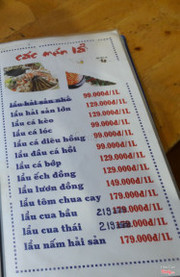 các món lẩu
lẩu hải sản nhỏ 99.000đ/1L
lẩu hải sản lớn 129.000đ/1L
lẩu cá kèo 99.000đ/1L
lẩu cá lóc 99.000đ/1L
lẩu cá diêu hồng 99.000đ/1L
lẩu đầu cá hồi 129.000đ/1L
lẩu cá bớp 129.000đ/1L
lẩu ếch đồng 129.000đ/1L
lẩu lươn đồng 149.000đ/1L
lẩu tôm chua cay 179.000đ/1L
lẩu cua bầu 219.000đ/1L
lẩu cua thái 219.000đ/1L
lẩu nấm hải sản 179.000đ/1L